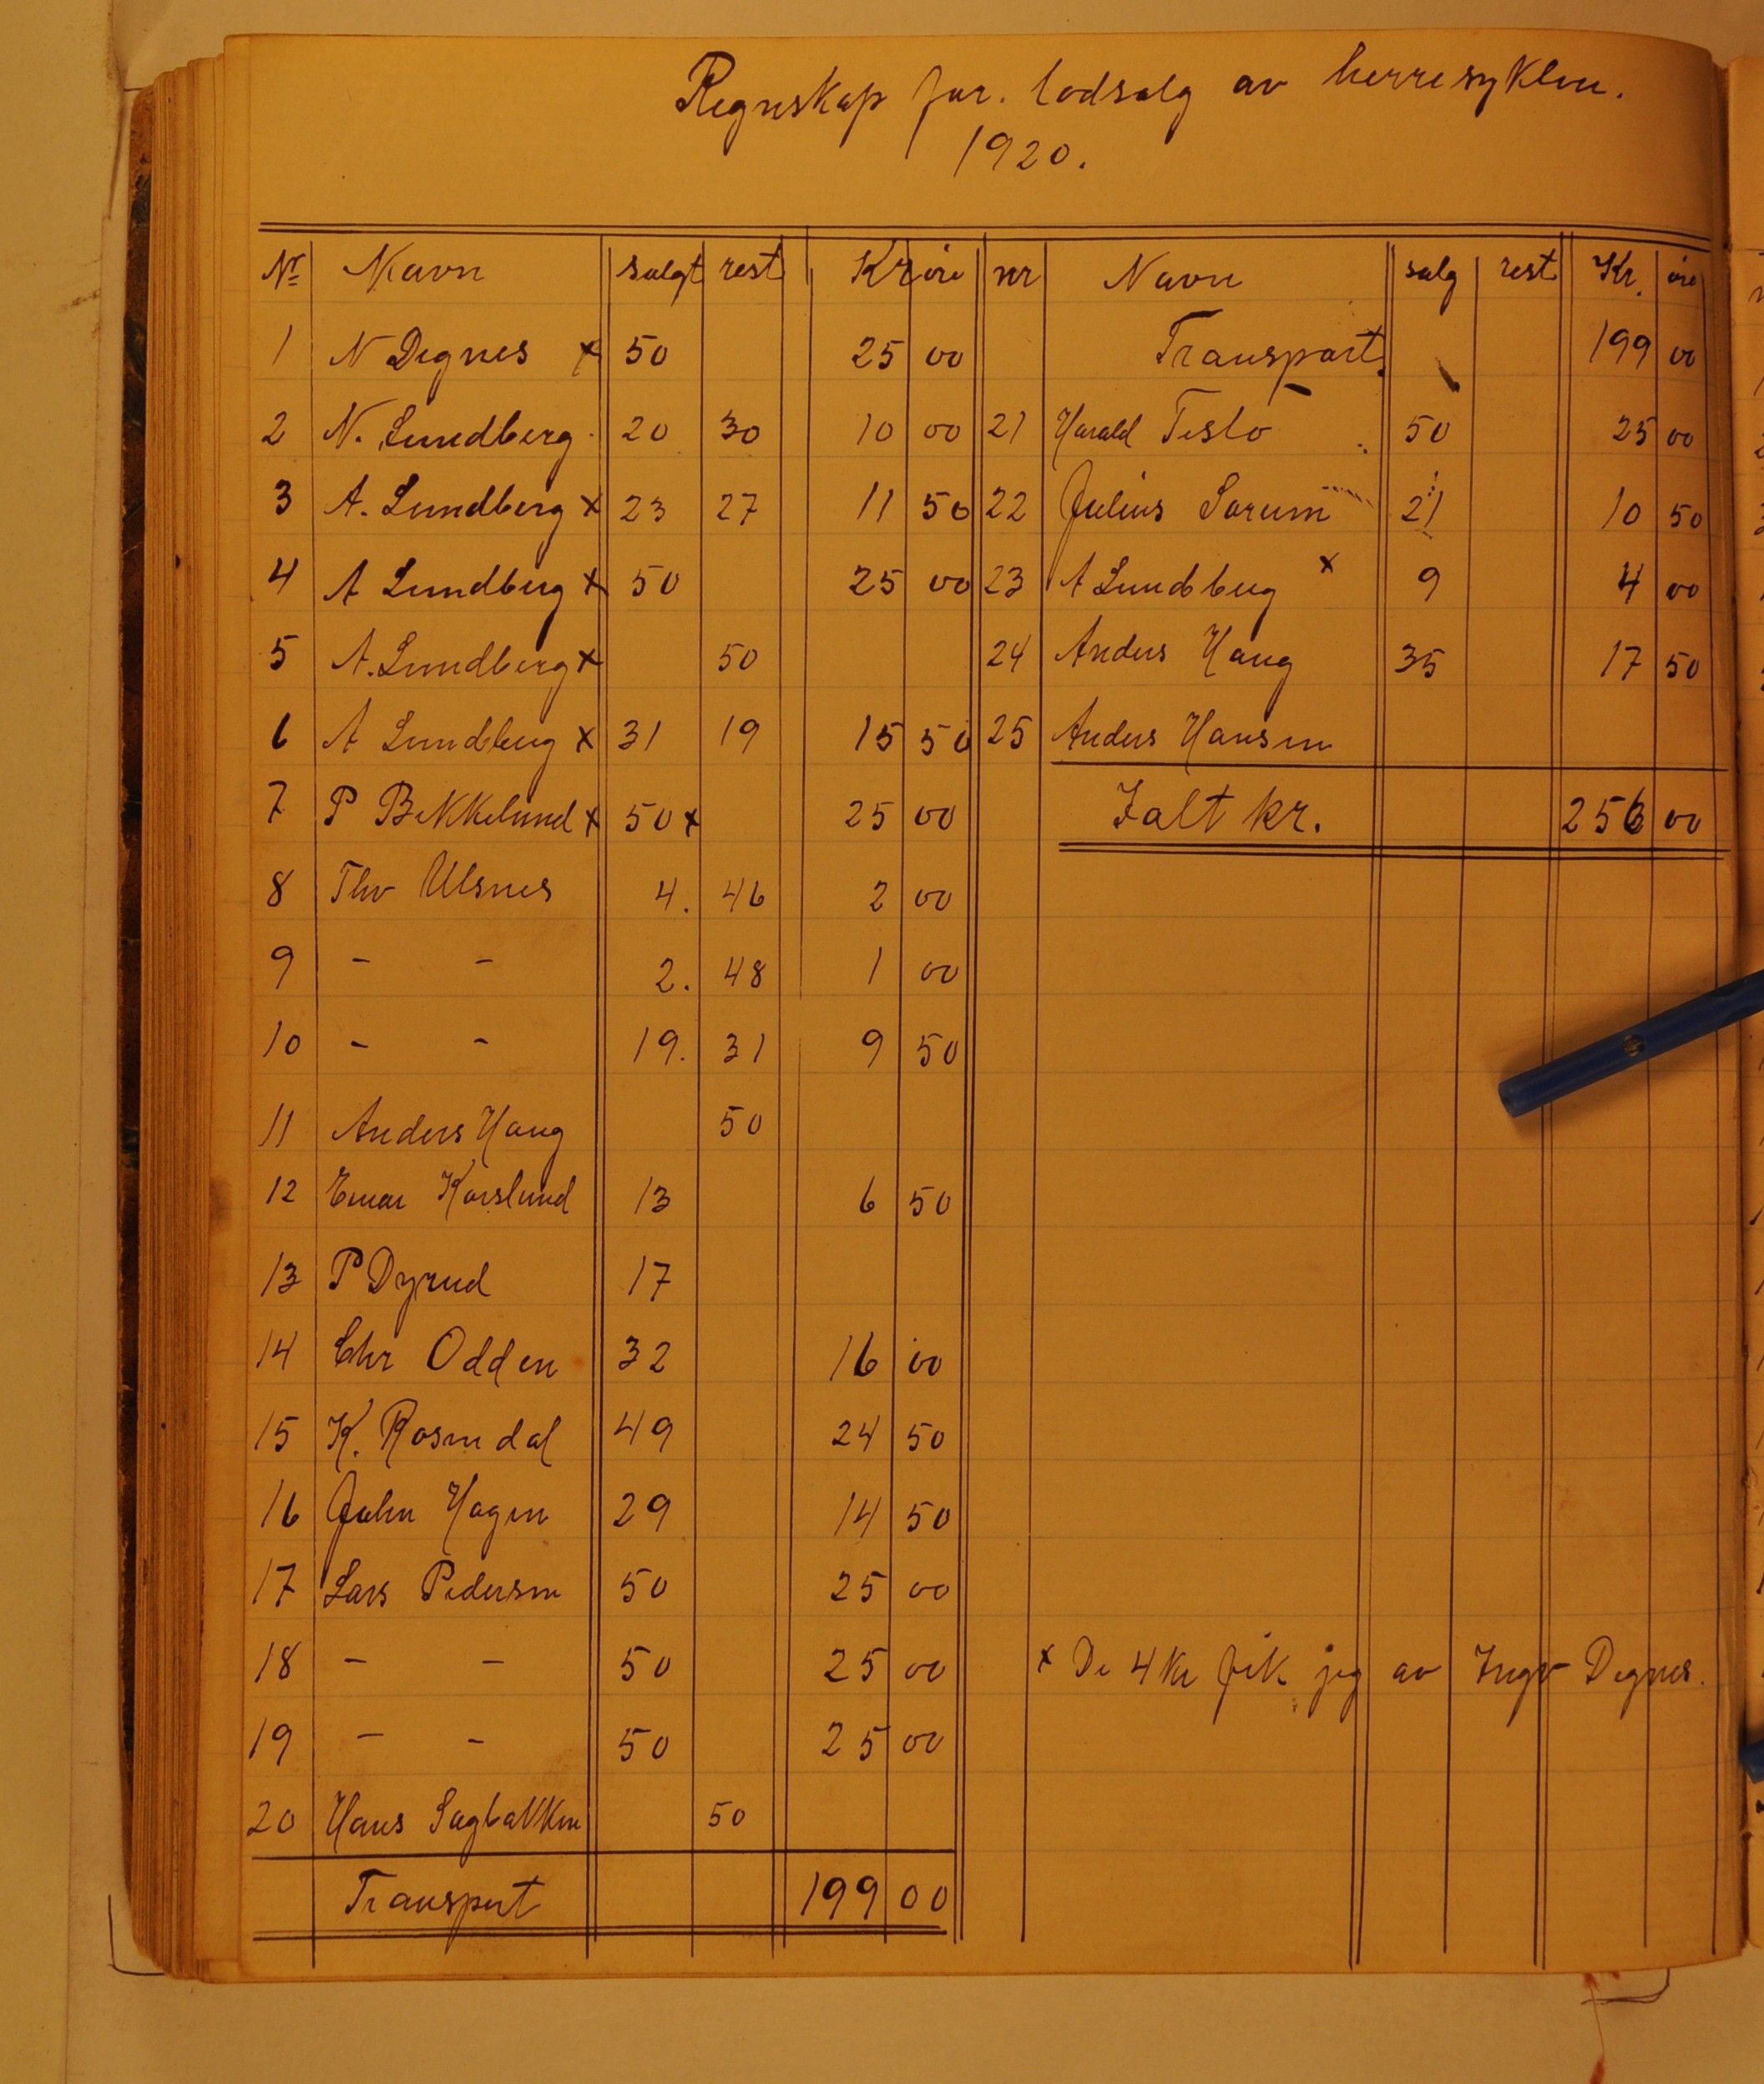 Regnskap for. lodsalg av herresyklen.
1920.
Nr Navn solgt rest Kr øre
1 N Dignes x 50 25 00
2 N. Lundberg 20 30 10 00
3 A. Lundberg x 23 27 11 50
4 A Lundberg x 50 25 00
5 A. Lundberg x 50
6 A Lundberg x 31 19 15 50
7 P Bekkelund x 50 x 25 00
8 Thv Ulsnes 4. 46 2 00
9 - - 2. 48 1 00
10 - - 19. 31 9 50
11 Anders Haug 50
12 Einar Karslund 13 6 50
13 P Dyrud 17
14 Chr Odden 32 16 00
15 K. Rosendal 49 24 50
16 John Hagen 29 14 50
17 Lars Pedersen 50 25 00
18 - - 50 25 00
19 - - 50 25 00
20 Hans Sagbakken 50
Transport 199 00
nr Navn salg rest Kr. øre
Transport. 199 00
21 Harald Teslo 50 25 00
22 Julius Sorum 21 10 50
23 A Lundberg x 9 4 00
24 Anders Haug 35 17 50
25 Anders Hansen
Ialt kr. 256 00
x De 4 Kr fik jeg av Ingv Dignes.